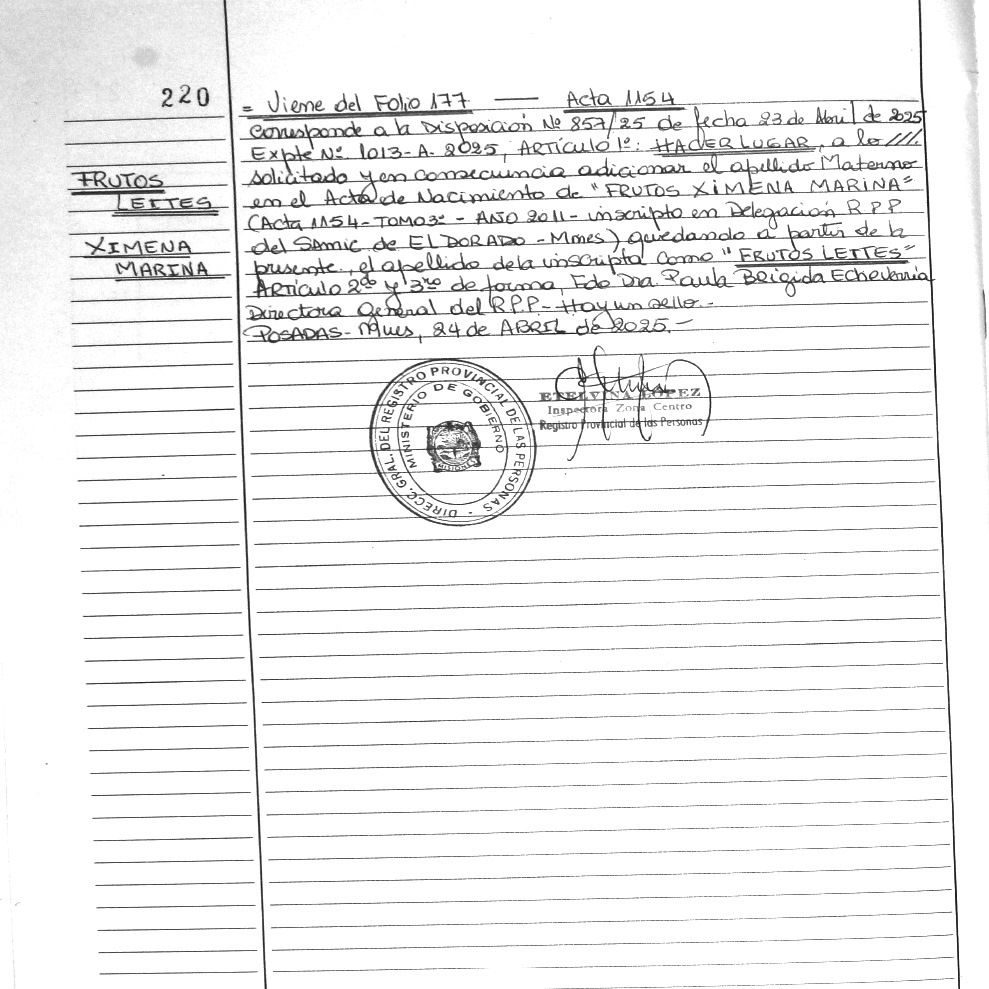 220
FRUTOS
LEITES
XIMENA
MARINA
= Viene del Folio 177 — Acta 1154
Corresponde a la Disposición Nº 857/25 de fecha 23 de Abril de 2025
Expte Nº 1013-A-2025, ARTÍCULO 1º: HACER LUGAR, a lo ///.
solicitado y en consecuencia adicionar el apellido Materno
en el Acta de Nacimiento de "FRUTOS XIMENA MARINA"
(Acta 1154-TOMO 3º - AÑO 2011 - inscripto en Delegación R P P
del SAMIC de ELDORADO - Mnes) quedando a partir de la
presente, el apellido de la inscripta como "FRUTOS LEITES"
ARTÍCULO 2do y 3ro de forma, Fdo Dra. Paula Brigida Echeverria
Directora General del R.P.P. - Hay un sello.-
POSADAS- Mnes, 24 de ABRIL de 2025.-
DIRECC. GRAL. DEL REGISTRO PROVINCIAL DE LAS PERSONAS -
MINISTERIO DE GOBIERNO
MISIONES
ETELVINA LOPEZ
Inspectora Zona Centro
Registro Provincial de las Personas